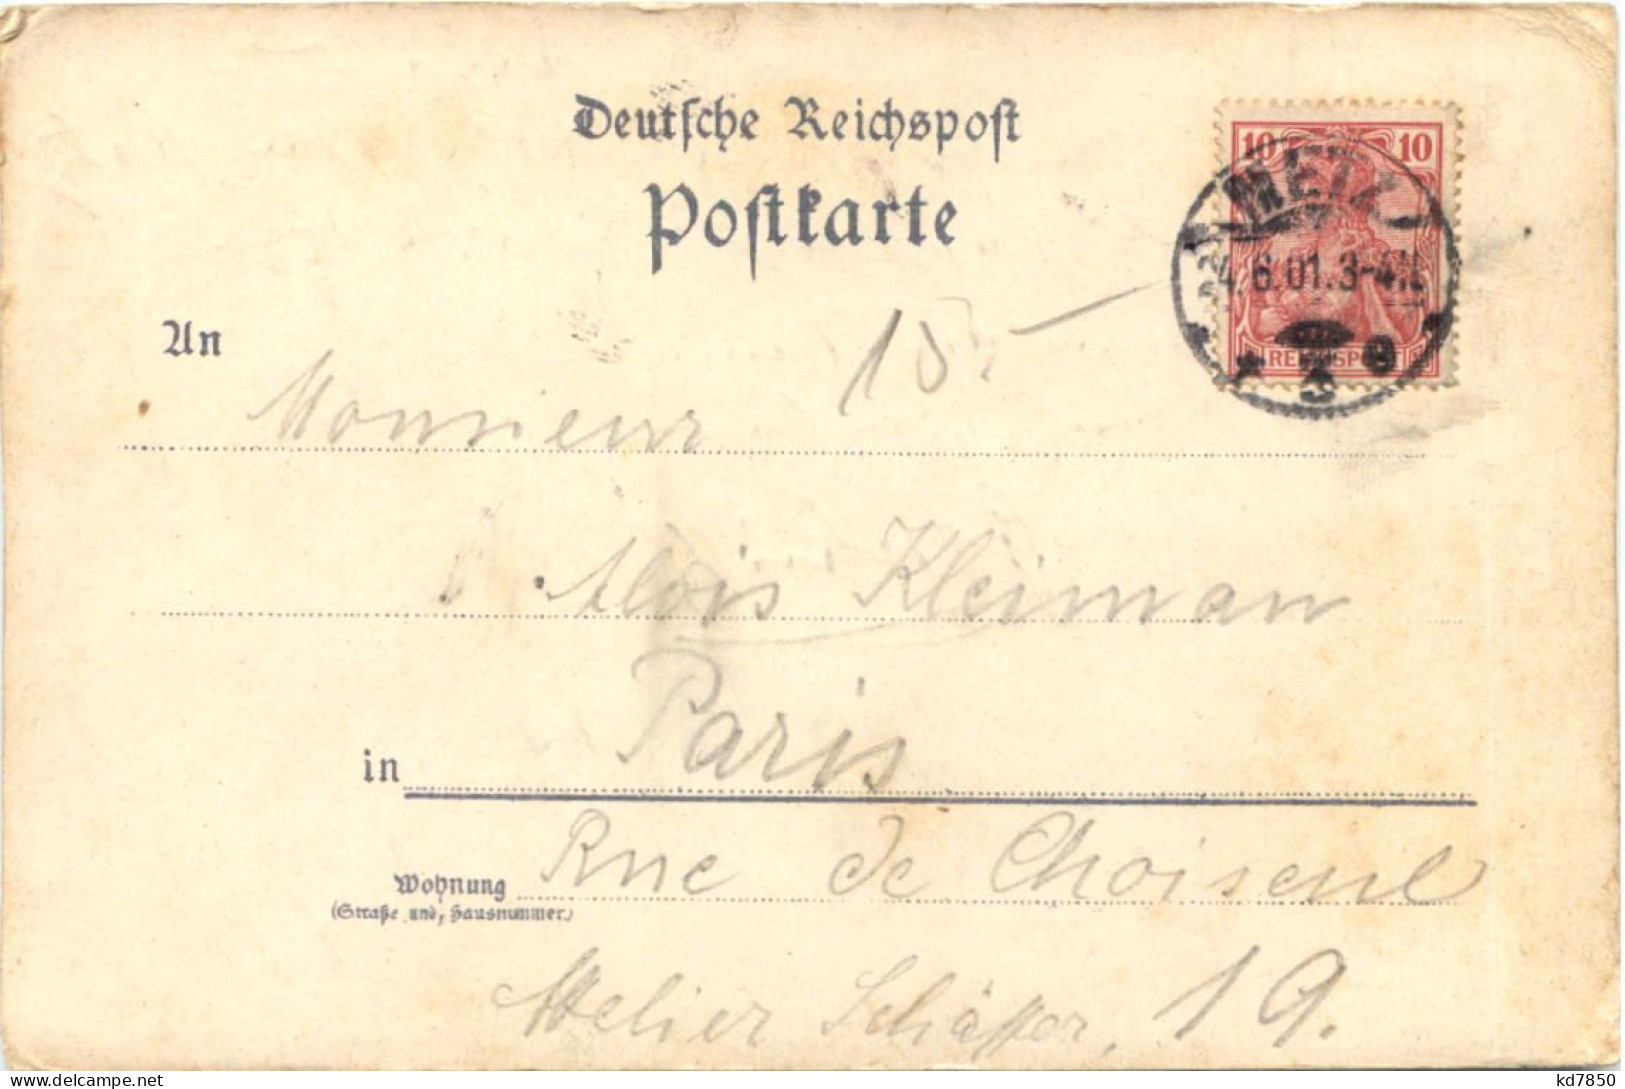 Deutsche Reichspost
Postkarte
10 10
METZ
4.6.01.3-4N.
REICHSPOST
An
15.
Monsieur
Alois Kleiman
in Paris
Wohnung Rue de Choiseul
(Straße und Hausnummer)
Atelier Schäffer, 19.
kd7850